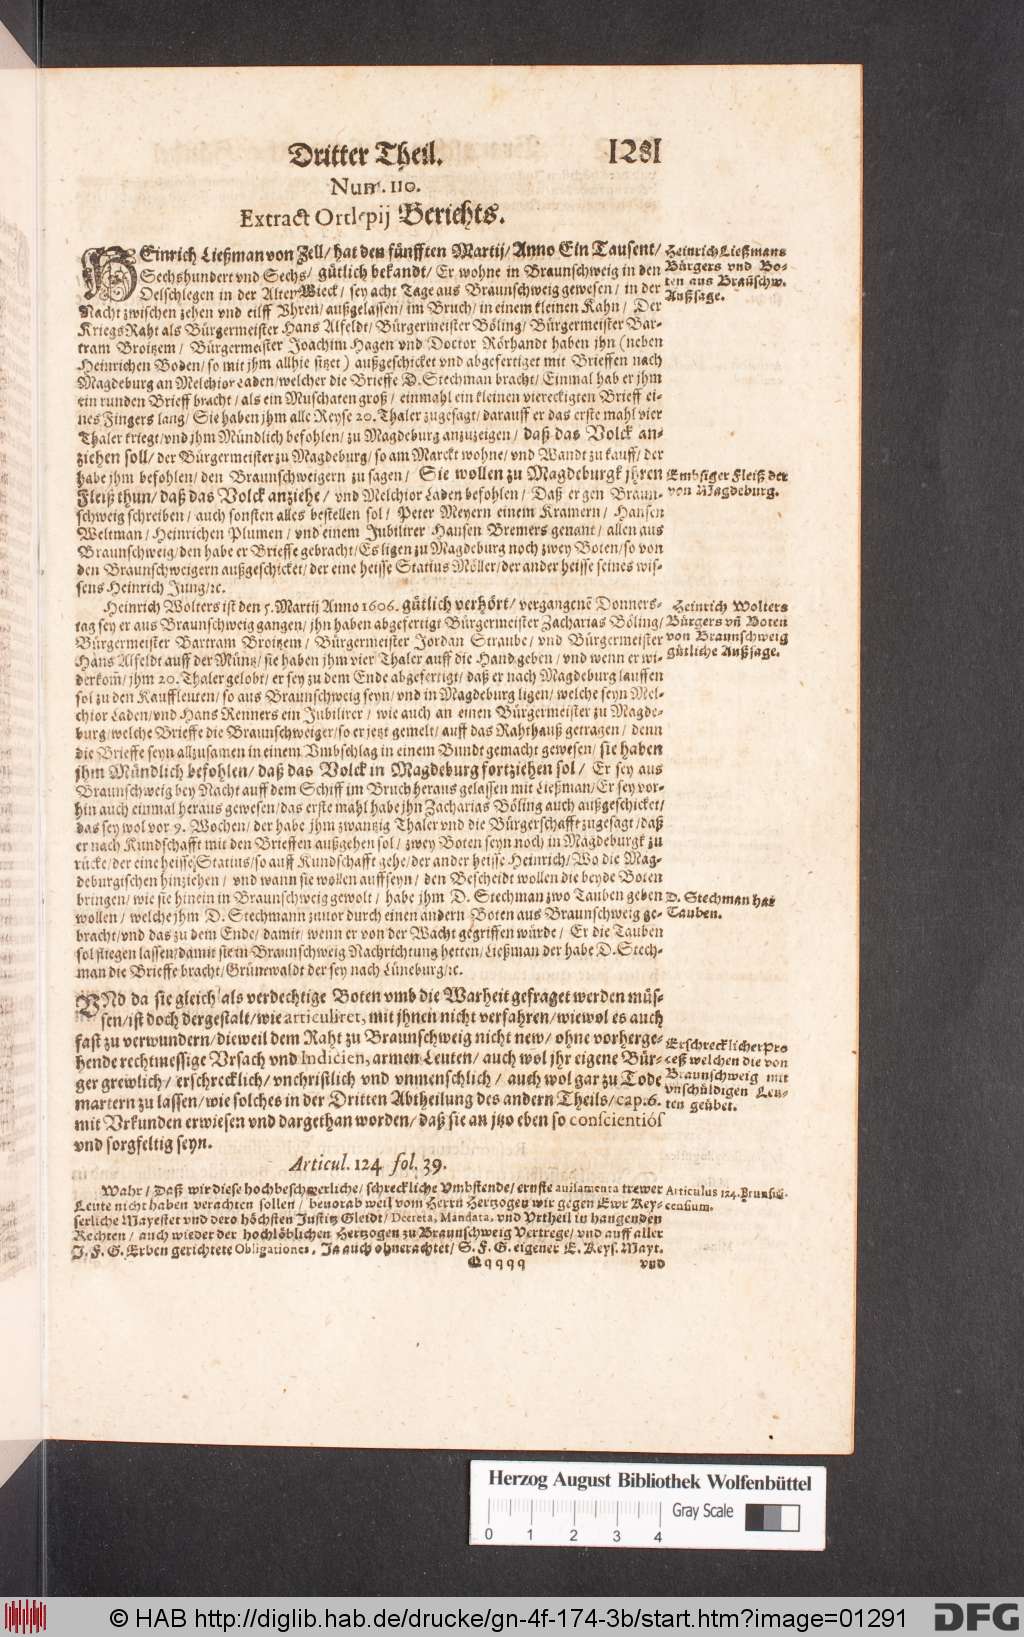 Dritter Theil. 1281
Num. 110.
Extract Ortlepij Berichts.
HEinrich Ließman von Zell/ hat den fünfften Martij/ Anno Ein Tausent/
Sechshundert vnd Sechs/ gütlich bekandt/ Er wohne in Braunschweig in den
Oelschlegen in der Alten Wieck/ sey acht Tage aus Braunschweig gewesen/ in der
Nacht zwischen zehen vnd eilff Vhren/ außgelassen/ im Bruch/ in einem kleinen Kahn/ Der
KriegsRaht als Bürgermeister Hans Alfeldt/ Bürgermeister Böling/ Bürgermeister Bar-
tram Broitzem/ Bürgermeister Joachim Hagen vnd Doctor Rörhandt haben jhn (neben
Heinrichen Boden/ so mit jhm allhie sitzet) außgeschicket vnd abgefertiget mit Brieffen nach
Magdeburg an Melchior Laden/ welcher die Brieffe D. Stechman bracht/ Einmal hab er jhm
ein runden Brieff bracht/ als ein Muschaten groß/ einmahl ein kleinen viereckigten Brieff ei-
nes Fingers lang/ Sie haben jhm alle Reyse 20. Thaler zugesagt/ darauff er das erste mahl vier
Thaler kriegt/ vnd jhm Mündlich befohlen/ zu Magdeburg anzuzeigen/ daß das Volck an-
ziehen soll/ der Bürgermeister zu Magdeburg/ so am Marckt wohne/ vnd Wandt zu kauff/ der
habe jhm befohlen/ den Braunschweigern zu sagen/ Sie wollen zu Magdeburgk jhren
Fleiß thun/ daß das Volck anziehe/ vnd Melchior Laden befohlen/ Daß er gen Braun-
schweig schreiben/ auch sonsten alles bestellen sol/ Peter Meyern einem Kramern/ Hansen
Weltman/ Heinrichen Plumen/ vnd einem Jubilirer Hansen Bremers genant/ allen aus
Braunschweig/ den habe er Brieffe gebracht/ Es ligen zu Magdeburg noch zwey Boten/ so von
den Braunschweigern außgeschicket/ der eine heisse Statius Möller/ der ander heisse seines wis-
sens Heinrich Jung/ ꝛc.
Heinrich Wolters ist den 5. Martij Anno 1606. gütlich verhört/ vergangenē Donners-
tag sey er aus Braunschweig gangen/ jhn haben abgefertigt Bürgermeister Zacharias Böling/
Bürgermeister Bartram Broitzem/ Bürgermeister Jordan Straube/ vnd Bürgermeister
Hans Alfeldt auff der Müntz/ sie haben jhm vier Thaler auff die Hand geben/ vnd wenn er wi-
derkom̄/ jhm 20. Thaler gelobt/ er sey zu dem Ende abgefertigt/ daß er nach Magdeburg lauffen
sol zu den Kauffleuten/ so aus Braunschweig seyn/ vnd in Magdeburg ligen/ welche seyn Mel-
chior Laden/ vnd Hans Renners ein Jubilirer/ wie auch an einen Bürgermeister zu Magde-
burg/ welche Brieffe die Braunschweiger/ so er jetzt gemelt/ auff das Rahthauß getragen/ denn
die Brieffe seyn allzusamen in einem Vmbschlag in einem Bundt gemacht gewesen/ sie haben
jhm Mündlich befohlen/ daß das Volck in Magdeburg fortziehen sol/ Er sey aus
Braunschweig bey Nacht auff dem Schiff im Bruch heraus gelassen mit Ließman/ Er sey vor-
hin auch einmal heraus gewesen/ das erste mahl habe jhn Zacharias Böling auch außgeschicket/
das sey wol vor 9. Wochen/ der habe jhm zwantzig Thaler vnd die Bürgerschafft zugesagt/ daß
er nach Kundschafft mit den Brieffen außgehen sol/ zwey Boten seyn noch in Magdeburgk zu
rücke/ der eine heisse Statius/ so auff Kundschafft gehe/ der ander heisse Heinrich/ Wo die Mag-
deburgischen hinziehen/ vnd wann sie wollen auffseyn/ den Bescheidt wollen die beyde Boten
bringen/ wie sie hinein in Braunschweig gewolt/ habe jhm D. Stechman zwo Tauben geben
wollen/ welche jhm D. Stechmann zuuor durch einen andern Boten aus Braunschweig ge-
bracht/ vnd das zu dem Ende/ damit/ wenn er von der Wacht gegriffen würde/ Er die Tauben
sol fliegen lassen/ damit sie in Braunschweig Nachrichtung hetten/ Ließman der habe D. Stech-
man die Brieffe bracht/ Grünewaldt der sey nach Lüneburg/ ꝛc.
VNd da sie gleich als verdechtige Boten vmb die Warheit gefraget werden müs-
sen/ ist doch dergestalt/ wie articuliret, mit jhnen nicht verfahren/ wiewol es auch
fast zu verwundern/ dieweil dem Raht zu Braunschweig nicht new/ ohne vorherge-
hende rechtmessige Vrsach vnd Indicien, armen Leuten/ auch wol jhr eigene Bür-
ger grewlich/ erschrecklich/ vnchristlich vnd vnmenschlich/ auch wol gar zu Tode
martern zu lassen/ wie solches in der Dritten Abtheilung des andern Theils/ cap. 6.
mit Vrkunden erwiesen vnd dargethan worden/ daß sie an jtzo eben so conscientiös
vnd sorgfeltig seyn.
Articul. 124 fol. 39.
Wahr/ Daß wir diese hochbeschwerliche/ schreckliche Vmbstende/ ernste auisamenta trewer
Leute nicht haben verachten sollen/ beuorab weil vom Herrn Hertzogen wir gegen Ewr Key-
serliche Mayestet vnd dero höchsten Justitz Gleidt/ Decreta, Mandata, vnd Vrtheil in hangenden
Rechten/ auch wieder der hochlöblichen Hertzogen zu Braunschweig Vertrege/ vnd auff aller
J. F. G. Erben gerichtete Obligationes, Ja auch ohnerachtet/ S. F. G. eigener E. Keys. Mayt.
Qqqqq vnd
Heinrich Ließmans
Bürgers vnd Bo-
ten aus Braūschw.
Außsage.
Embsiger Fleiß der
von Magdeburg.
Heinrich Wolters
Bürgers vn̄ Boten
von Braunschweig
gütliche Außsage.
D. Stechman hat
Tauben.
Erschrecklicher Pro
ceß welchen die von
Braunschweig mit
vnschüldigen Leu-
ten geübet.
Articulus 124. Brunsvi-
censium.
Herzog August Bibliothek Wolfenbüttel
Gray Scale
0 1 2 3 4
© HAB http://diglib.hab.de/drucke/gn-4f-174-3b/start.htm?image=01291
DFG